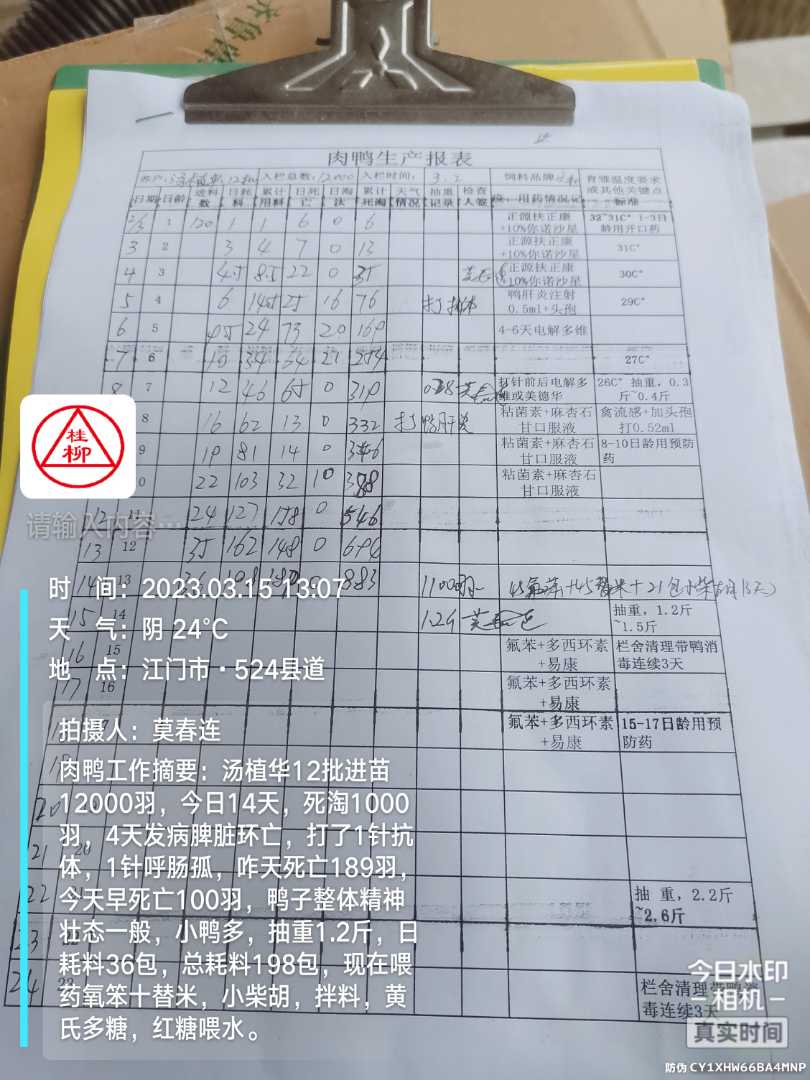 肉鸭生产报表
12000 入栏时间: 3.2 饲料品牌 育雏温度要求或其他关键点标准
日期 日龄 进料数 日耗料 累计用料 日死亡 日淘汰 累计死淘 天气情况 抽重记录 检查人签 用药情况记
1 120 1 1 6 0 6 正源扶正康+10%你诺沙星 32~31C° 1-3日龄用开口药
3 2 3 4 7 0 13 正源扶正康+10%你诺沙星 31C°
4 3 4.5 8.5 22 0 35 正源扶正康+10%你诺沙星 30C°
5 4 6 14.5 25 16 76 打抗体 鸭肝炎注射0.5ml+头孢 29C°
6 5 24 73 20 4-6天电解多维
7 6 10 34 27C°
8 7 12 46 65 0 打针前后电解多维或美德华 26C° 抽重,0.3斤~0.4斤
8 16 62 13 0 332 打鸭肝炎 粘菌素+麻杏石甘口服液 禽流感+加头孢打0.52ml
9 19 81 14 0 346 粘菌素+麻杏石甘口服液 8-10日龄用预防药
22 103 32 10 388 粘菌素+麻杏石甘口服液
12 11 24 127 158 0 546
13 12 35 162 148 0 694
14 13 883
15 14 抽重,1.2斤~1.5斤
16 15 氟苯+多西环素+易康 栏舍清理带鸭消毒连续3天
17 16 氟苯+多西环素+易康
氟苯+多西环素+易康 15-17日龄用预防药
20
21
22 抽 重,2.2斤~2.6斤
23
24 栏舍清理带鸭消毒连续3天
桂柳
请输入内容…
时 间:2023.03.15 13:07
天 气:阴 24℃
地 点:江门市·524县道
拍摄人:莫春连
肉鸭工作摘要:汤植华12批进苗
12000羽,今日14天,死淘1000
羽,4天发病脾脏环亡,打了1针抗
体,1针呼肠孤,咋天死亡189羽,
今天早死亡100羽,鸭子整体精神
壮态一般,小鸭多,抽重1.2斤,日
耗料36包,总耗料198包,现在喂
药氧笨十替米,小柴胡,拌料,黄
氏多糖,红糖喂水。
今日水印
相机
真实时间
防伪 CY1XHW66BA4MNP